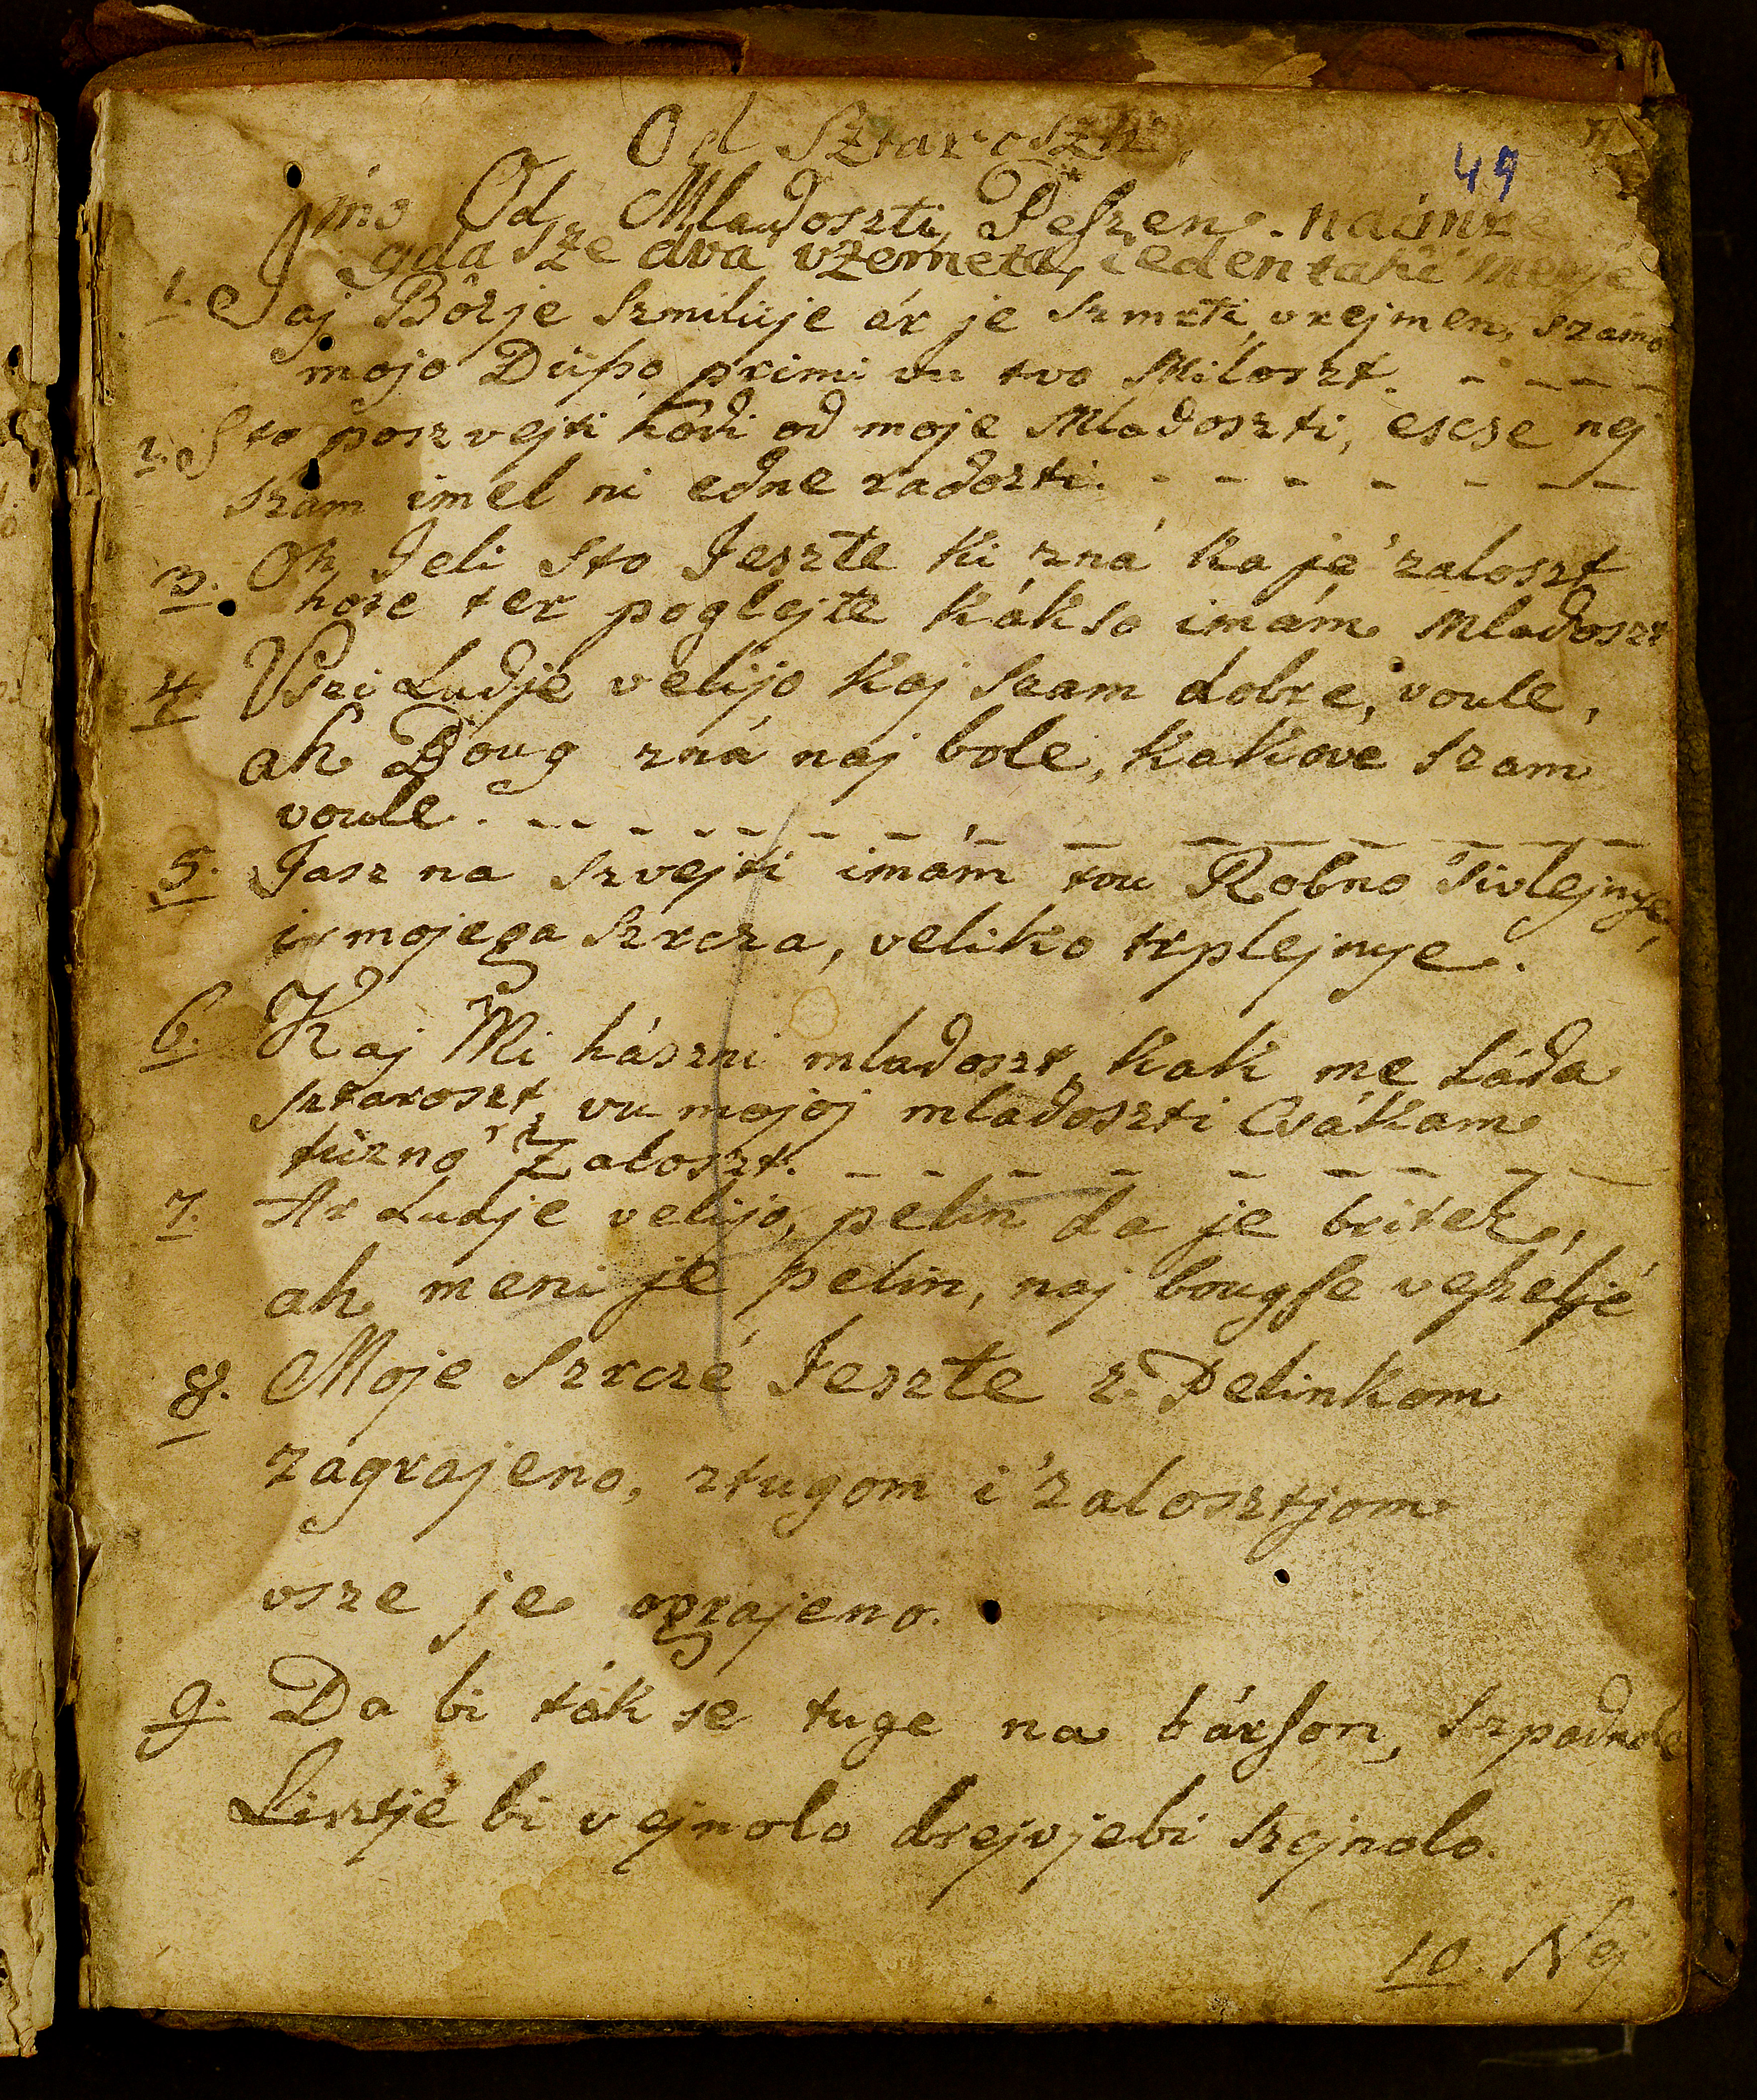 Od Sztaroszti,
49
ino Od Mladoszti, Peszen. naimre
gda sze dva vzemeta, i eden taki merjé
1. Jaj Bôzje szmiluje ár je szmrti vrejmen, szamo
mojo Düsso primi vu tvo Miloszt. - - - -
2. Sto poszvejti hódi od moje Mladoszti, escse nej
szam imel ni edne radoszti. - - - - - - -
3. Oh Jeli Sto Jeszte ki zná ka je 'zaloszt
hore ter poglejte kákso imám Mladoszt
4. Vszi Ludje velijo kaj szam dobre, voule,
ah Boug zná naj bole, kakove szam
voule. - - - - - - - - - - - - -
5. Jasz na szvejti imám tou Robno 'sivlejnye,
ir mojega szrcza, veliko trplejnye.
6. Kaj Mi hászni mladoszt, kak me Láda
sztaroszt, vu mojoj mladoszti Csákam
tüzno 'Zaloszt. - - - - - - - - - -
7. Ar Ludje velijo, pelin da je britek,
ah meni je pelin, naj bougse veszeljé
8. Moje Szrczé Jeszte z. Pelinkom
zagrajeno, ztugom i 'zalosztjom
vsze je ograjeno.
9. Da bi tákse tuge na bárson, szpadnolo
Lisztjé bi vejnolo drejvjebi szejnolo.
10. Nej